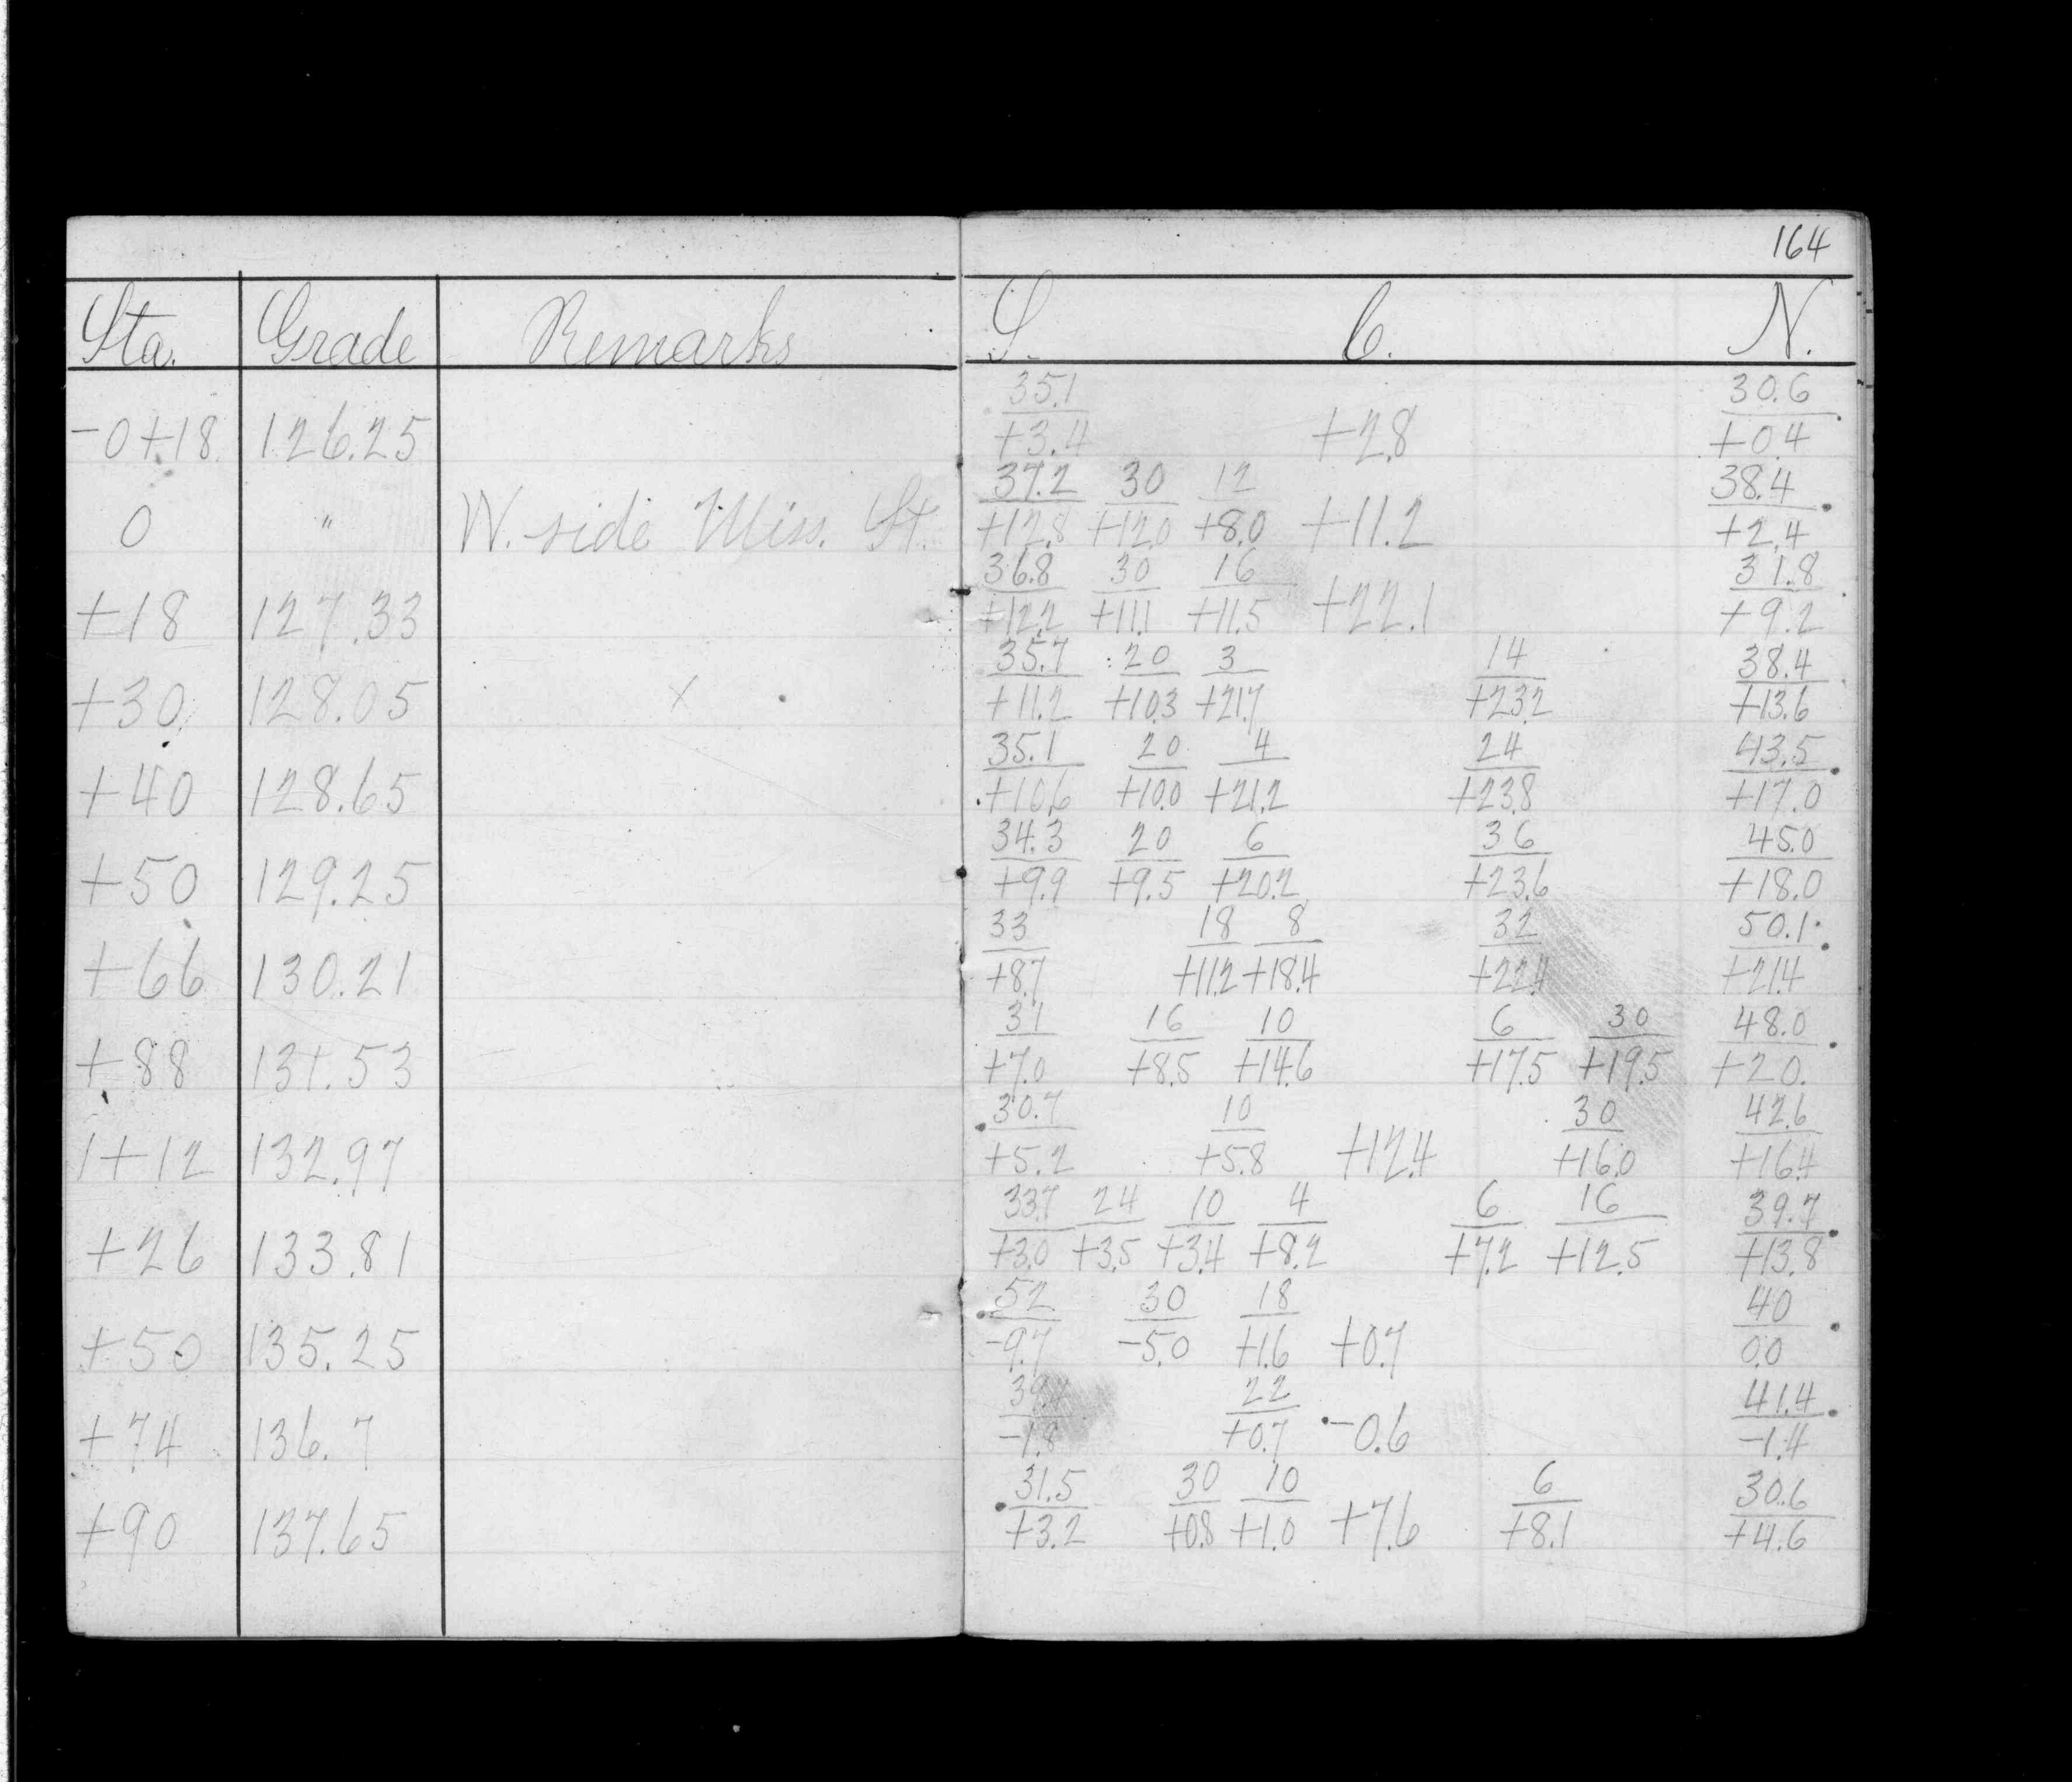 164
Sta. Grade Remarks S. C. N.
35.1 30.6
-0+18 126.25 +3.4 +2.8 +0.4
37.2 30 12 38.4
0 " W. side Miss. St. +12.8 +12.0 +8.0 +11.2 +2.4
36.8 30 16 31.8
+18 127.33 +12.2 +11.1 +11.5 +22.1 +9.2
35.7 20 3 14 38.4
+30 128.05 x +11.2 +10.3 +21.7 +23.2 +13.6
35.1 20 4 24 43.5
+40 128.65 +10.6 +10.0 +21.2 +23.8 +17.0
34.3 20 6 36 45.0
+50 129.25 +9.9 +9.5 +20.2 +23.6 +18.0
33 18 8 32 50.1
+66 130.21 +8.7 +11.2 +18.4 +22.4 +21.4
31 16 10 6 30 48.0
+88 131.53 +7.0 +8.5 +14.6 +17.5 +19.5 +20.
30.7 10 30 42.6
1+12 132.97 +5.2 +5.8 +12.4 +16.0 +16.4
33.7 24 10 4 6 16 39.7
+26 133.81 +3.0 +3.5 +3.4 +8.2 +7.2 +12.5 +13.8
52 30 18 40
+50 135.25 -9.7 -5.0 +1.6 +0.7 0.0
22 41.4
+74 136.7 -1.8 +0.7 -0.6 -1.4
31.5 30 10 6 30.6
+90 137.65 +3.2 +0.8 +1.0 +7.6 +8.1 +4.6